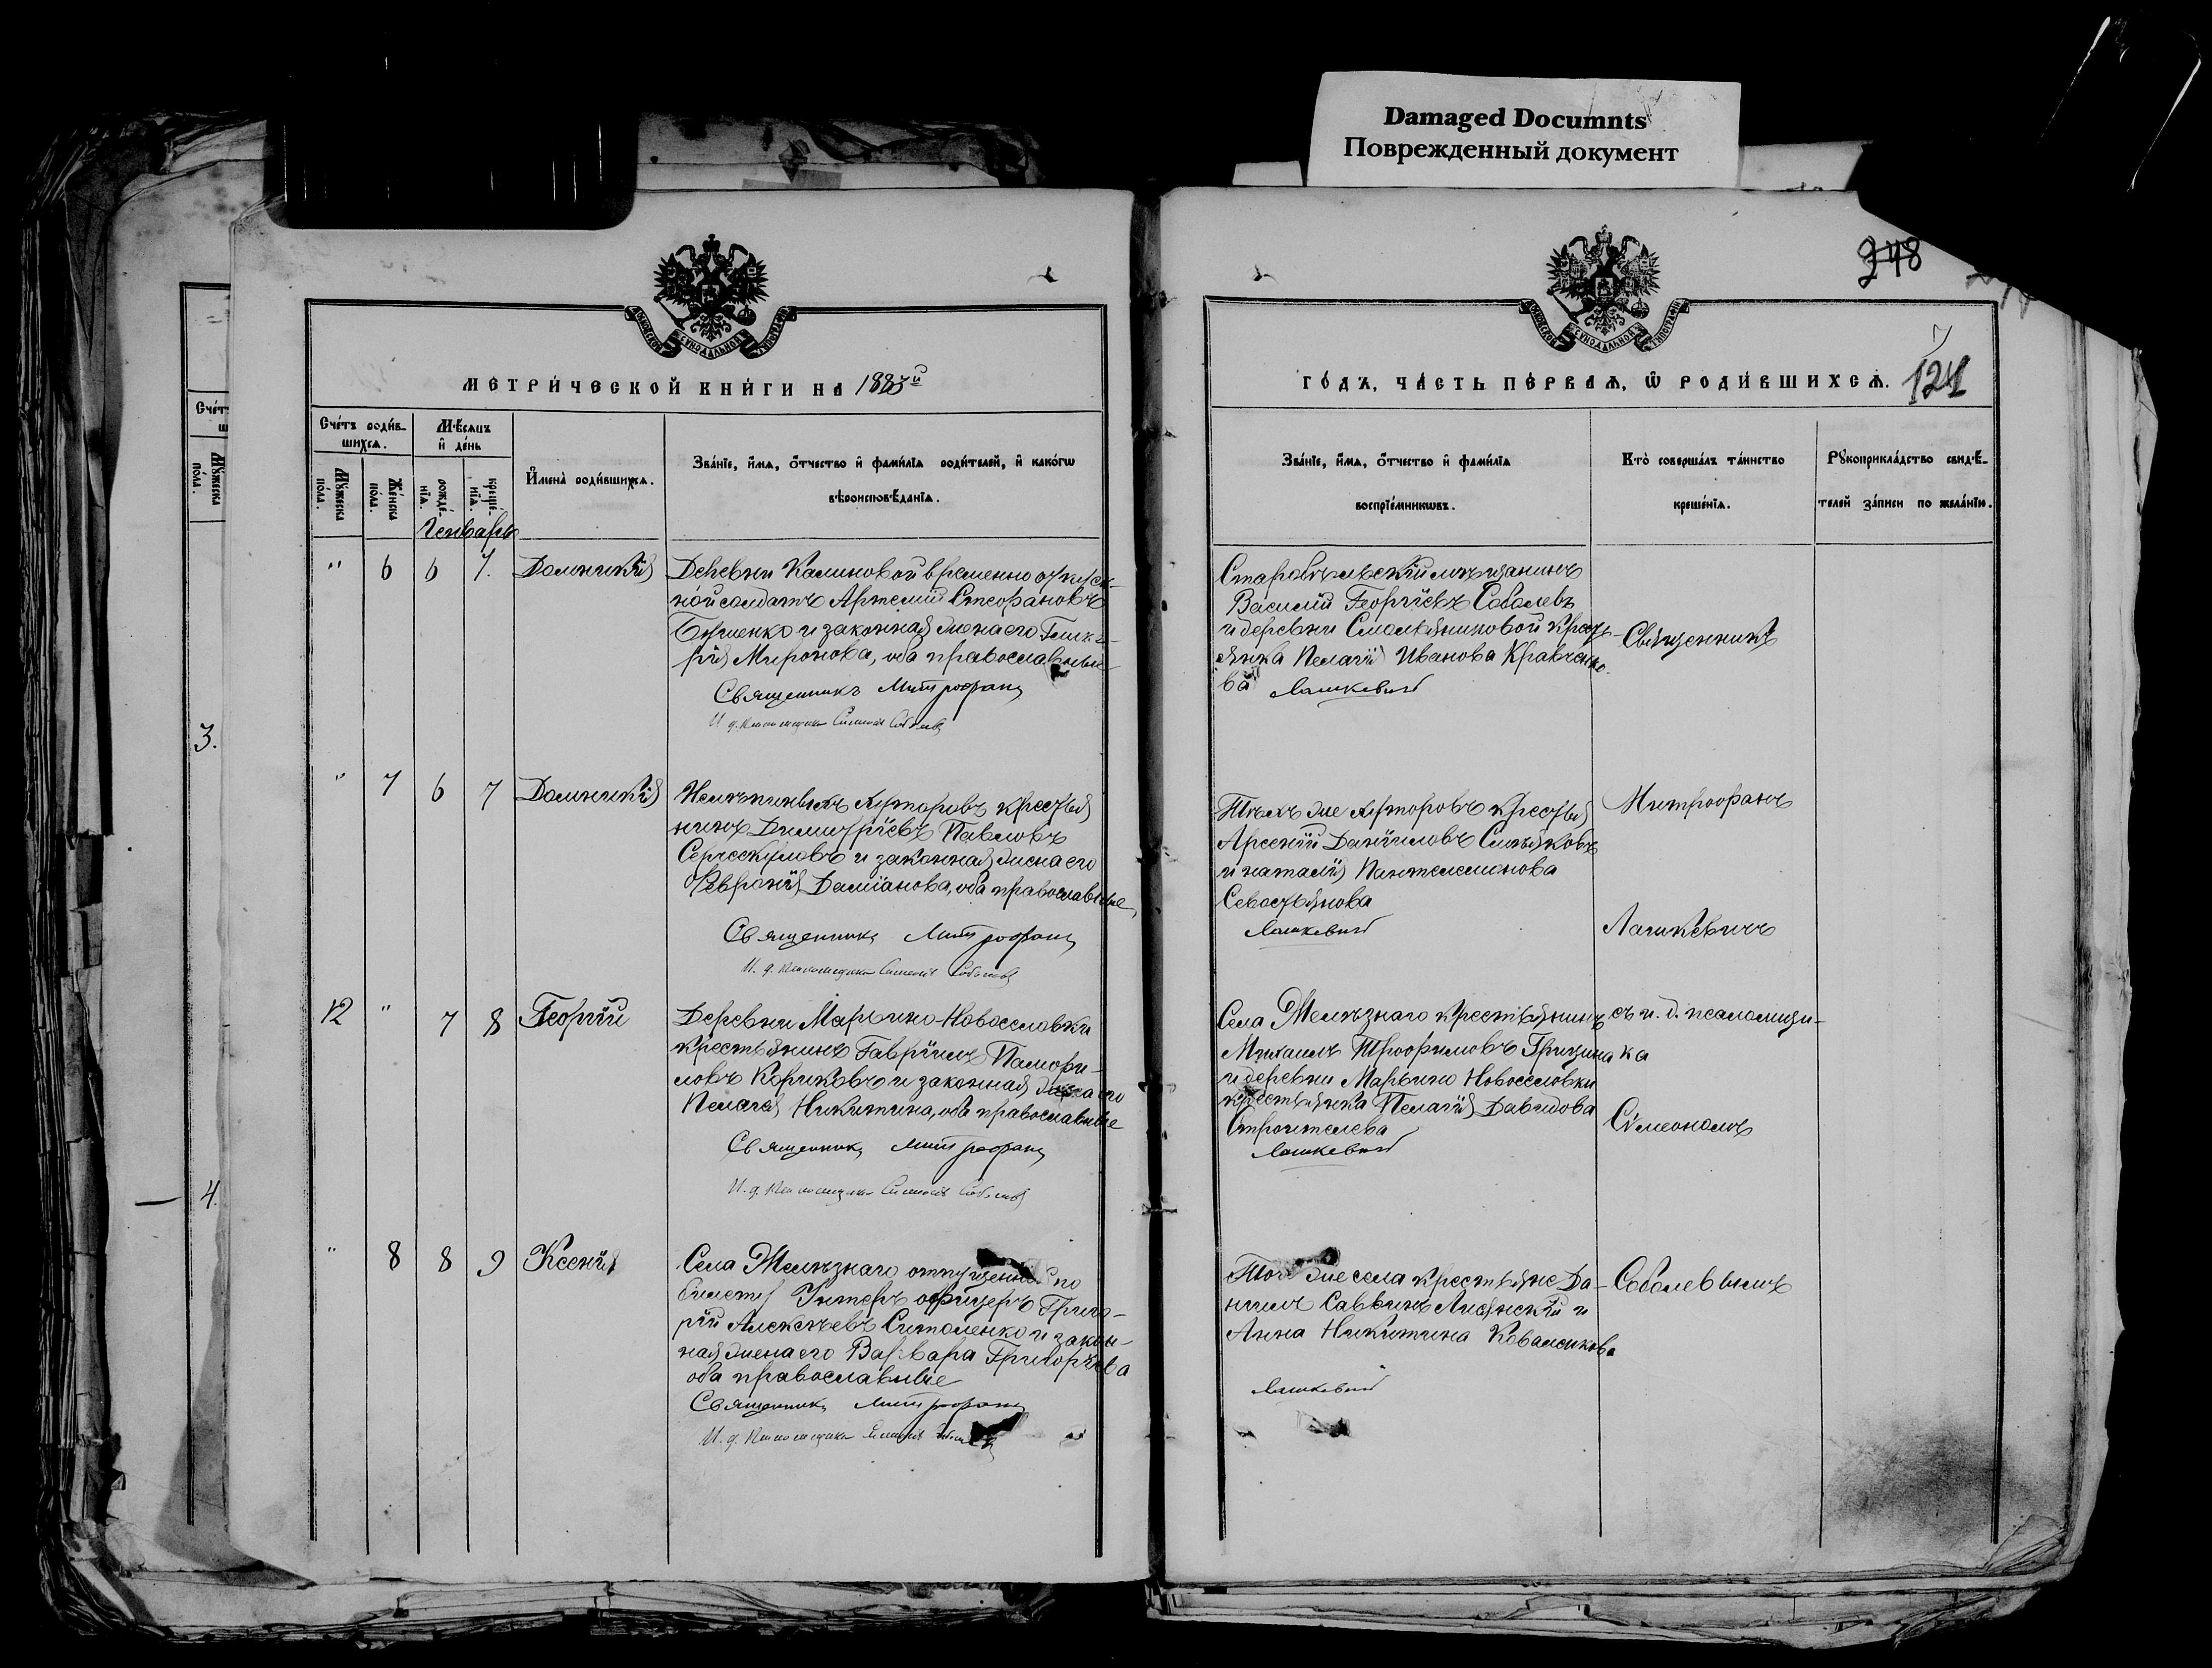 Damaged Documnts
Поврежденный документ
248
124
МЕТРИ́ЧЕСКОЙ КНИ́ГИ НА 1883й
ГО́ДЪ, ЧА́СТЬ ПЕ́РВАѦ, Ѡ РОДИ́ВШИХСѦ.
Сче́тъ роди́в-
шихсѧ.
Мѣ́сѧцъ
и҆ де́нь
Мꙋ́жеска по́ла.
Же́нска по́ла.
рожде́-нїѧ.
креще́-нїѧ.
И҆мена̀ роди́вшихсѧ.
Зва́нїе, и҆́мѧ, ѻ҆́тчество и҆ фами́лїѧ роди́телей, и҆ како́гѡ
вѣроисповѣ́данїѧ.
Зва́нїе, и҆́мѧ, ѻ҆́тчество и҆ фами́лїѧ
воспрїе́мникѡвъ.
Кто̀ соверша́лъ та́инство
креще́нїѧ.
Рꙋкоприкла́дство свидѣ́-
телей за́писи по жела́нїю.
Генварь
" 6 6 7. Домникія
Деревни Калиновой временно отпуск-
ной солдатъ Артемій Стефановъ
и законная жена его Глике-
рія Миронова, оба православные
Священникъ Митрофанъ
И. д. псаломщика Симеонъ Соболевъ
Старобѣльскій мѣщанинъ
Василій Георгіевъ Соболевъ
и деревни крестья-
янка Пелагія Иванова Кравченко-
ва Лашкевичъ
Священникъ
" 7 6 7 Домникія
хуторовъ крестья
нинъ Димитріевъ Павловъ
и законная жена его
Февронія Даміанова, оба православные
Священникъ Митрофанъ
И. д. псаломщика Симеонъ Соболевъ
Тѣхъ же хуторовъ крестья
Арсеній Даніиловъ
и Наталія Пантелеимонова
Севостьянова
Лашкевичъ
Митрофанъ
Лашкевичъ
12 " 7 8 Георгій
Деревни Марьино-Новоселовки
крестьянинъ Гавріилъ Памфи-
ловъ Кориковъ и законная жена его
Пелагея Никитина, оба православные
Священникъ Митрофанъ
И. д. псаломщика Симеонъ Соболевъ
Села Желѣзнаго крестьянинъ
Михаилъ Трофимовъ Грицина
и деревни Марьино Новоселовки
крестьянка Пелагія Давидова
Строителева
Лашкевичъ
съ и. д. псаломщи-
ка
Сѵмеономъ
" 8 8 9 Ксенія
Села Желѣзнаго отпущенный по
билету Унтеръ офицеръ Григо-
рій Алексѣевъ Ситоленко и закон-
ная жена его Варвара Григорьева
оба православные
Священникъ Митрофанъ
И. д. псаломщика Симеонъ
Того же села крестьяне Да-
ніилъ Саввинъ и
Анна Никитина Ковалчикова
Лашкевичъ
Соболевымъ
3.
4.